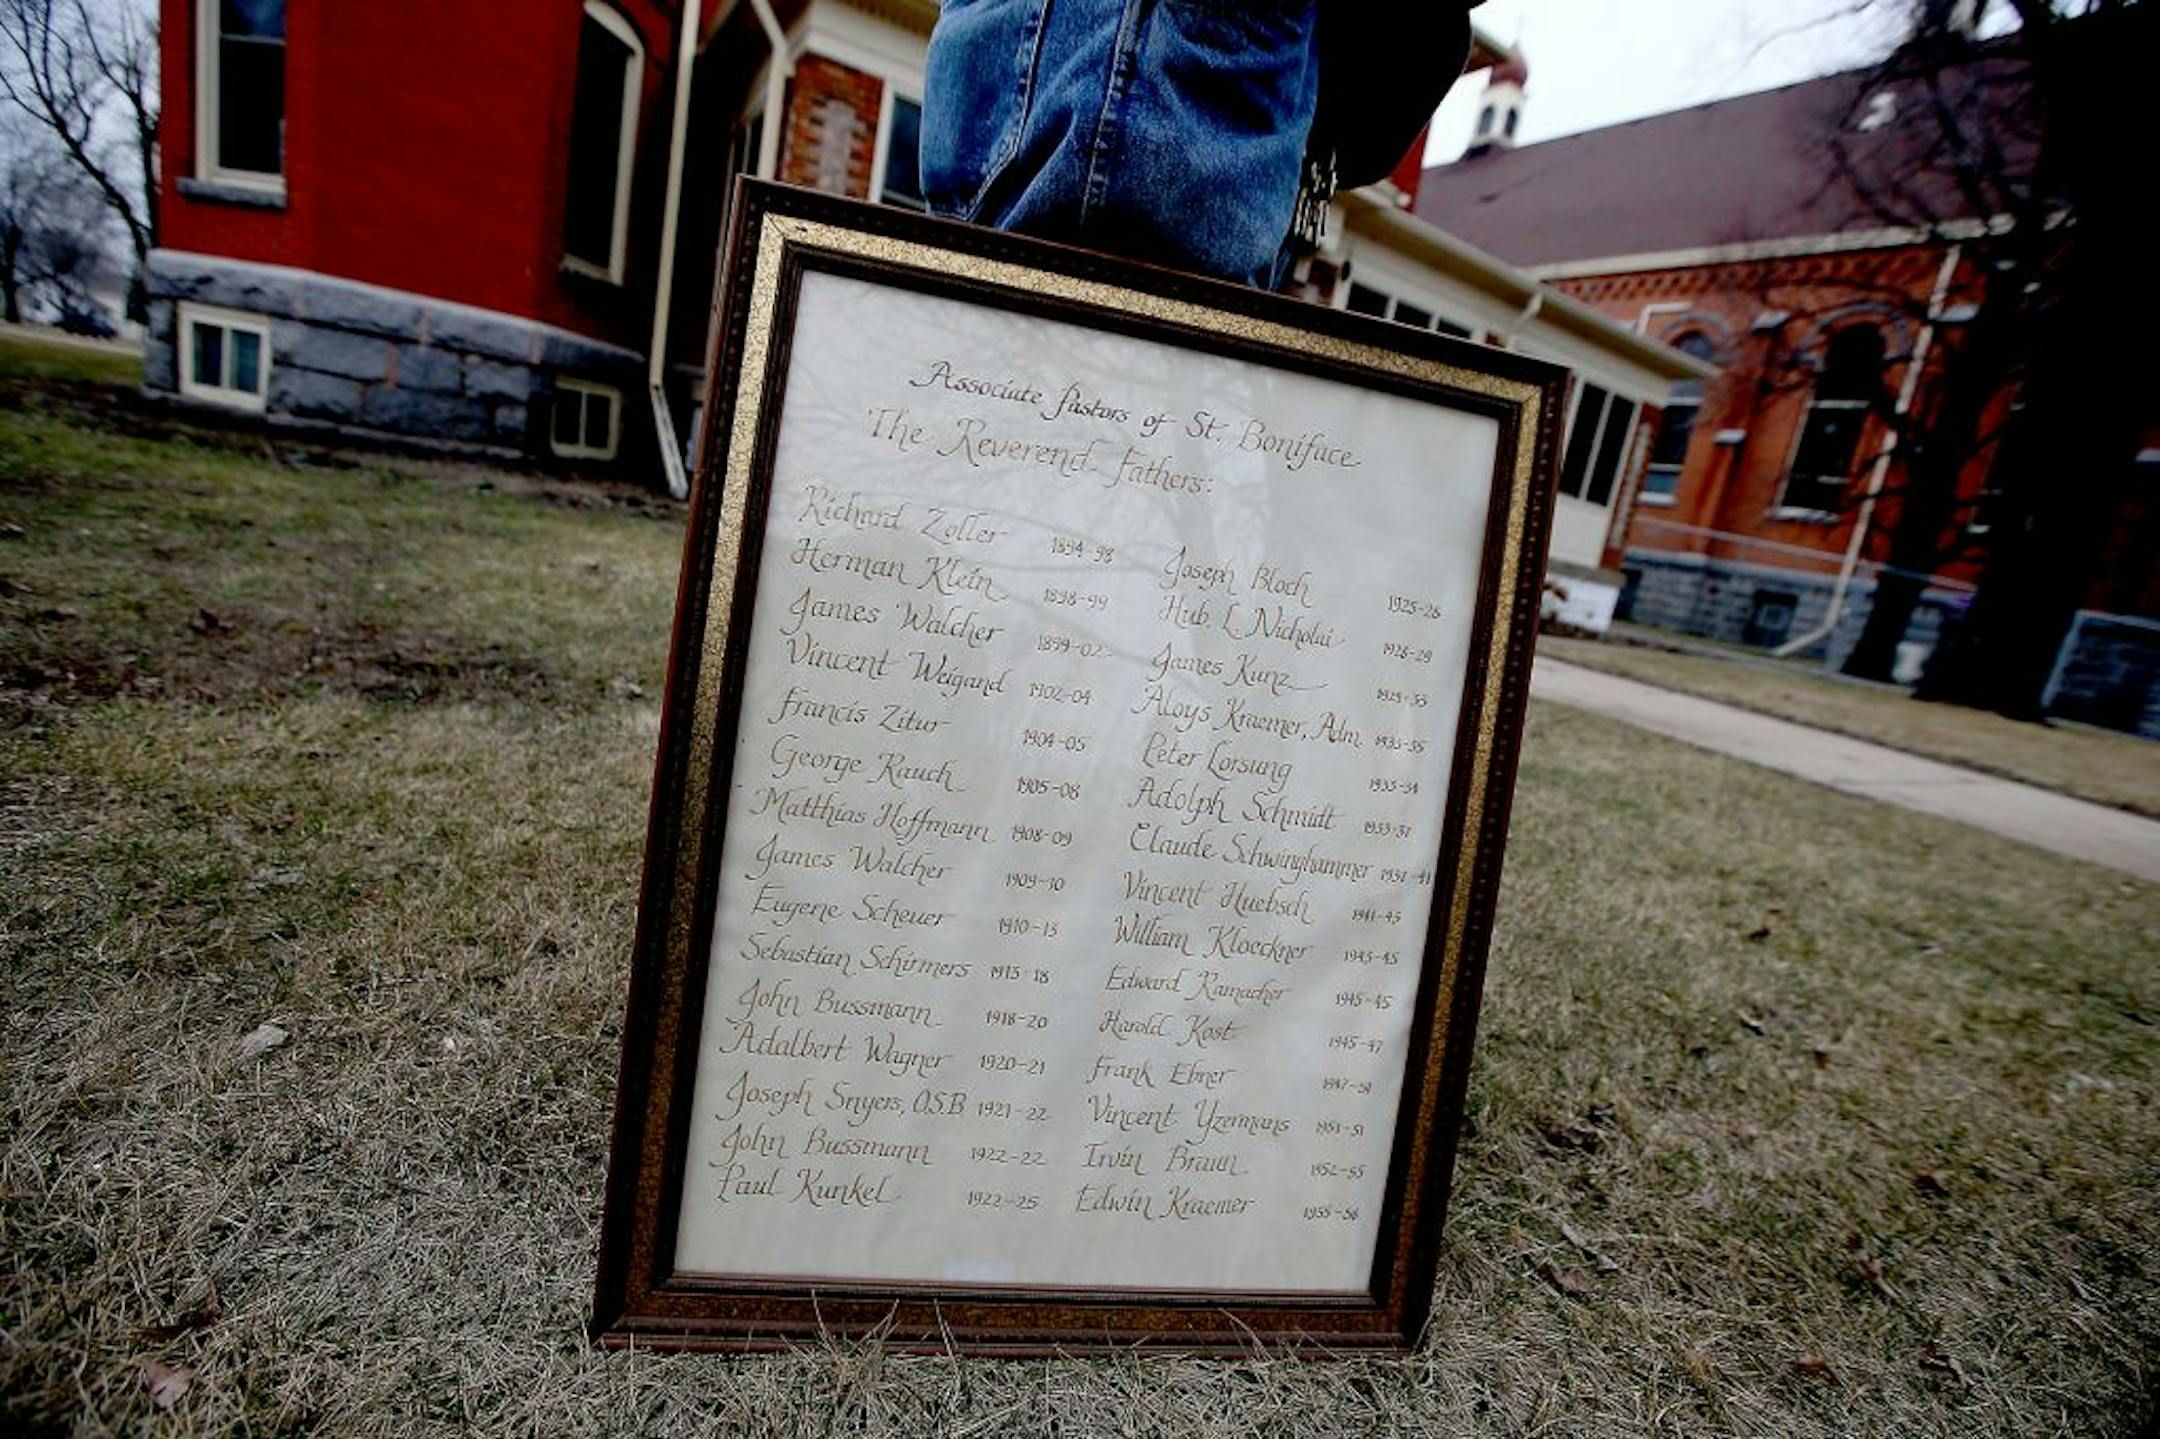 Associate Pastors of St. Boniface
The Reverend Fathers:
Richard Zoller 1894-98
Herman Klein 1898-99
James Walcher 1899-02
Vincent Weigand 1902-04
Francis Zitur 1904-05
George Rauch 1905-08
Matthias Hoffmann 1908-09
James Walcher 1909-10
Eugene Scheuer 1910-13
Sebastian Schirmers 1913-18
John Bussmann 1918-20
Adalbert Wagner 1920-21
Joseph Snyers, O.S.B 1921-22
John Bussmann 1922-22
Paul Kunkel 1922-25
Joseph Bloch 1925-26
Hub. L Nicholai
James Kunz
Aloys Kraemer, Adm. 1933-35
Peter Lorsung 1933-34
Adolph Schmidt
Claude Schwinghammer
Vincent Huebsch 1941-43
William Kloeckner 1943-45
Edward Ramacher 1945-45
Harold Kost 1945-47
Frank Ebner 1947-51
Vincent Yzermans 1951-51
Irvin Braun 1952-55
Edwin Kraemer 1955-56